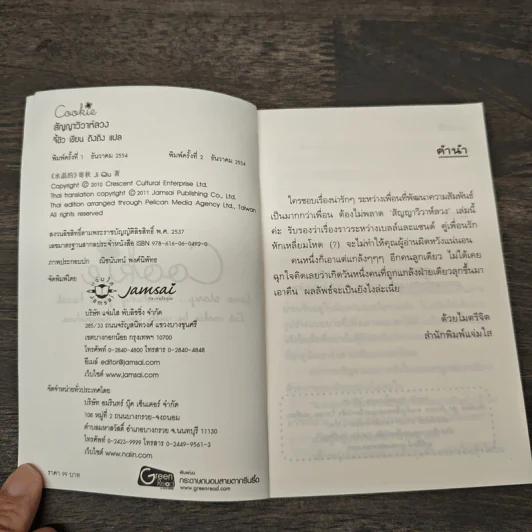 Cookie
สัญญาวิวาห์ลวง
จี้ชิว เขียน ถิงถิง แปล
พิมพ์ครั้งที่ 1 ธันวาคม 2554 พิมพ์ครั้งที่ 2 ธันวาคม 2554
Ji Qiu 著
Copyright © 2010 Crescent Cultural Enterprise Ltd.
Thai translation copyright © 2011 Jamsai Publishing Co., Ltd.
Thai edition arranged through Pelican Media Agency Ltd., Taiwan
All rights reserved
สงวนลิขสิทธิ์ตามพระราชบัญญัติลิขสิทธิ์ พ.ศ. 2537
เลขมาตรฐานสากลประจำหนังสือ ISBN 978-616-06-0492-0
ภาพประกอบปก ณิชนันทน์ พงศ์นิพัทธ
จัดพิมพ์โดย
jamsai
บริษัท แจ่มใส พับลิชชิ่ง จำกัด
285/33 ถนนจรัญสนิทวงศ์ แขวงบางขุนศรี
เขตบางกอกน้อย กรุงเทพฯ 10700
โทรศัพท์ 0-2840-4800 โทรสาร 0-2840-4848
อีเมล์ editor@jamsai.com
เว็บไซต์ www.jamsai.com
จัดจำหน่ายทั่วประเทศโดย
บริษัท อมรินทร์ บุ๊ค เซ็นเตอร์ จำกัด
108 หมู่ที่ 2 ถนนบางกรวย-จงถนอม
ตำบลมหาสวัสดิ์ อำเภอบางกรวย จ.นนทบุรี 11130
โทรศัพท์ 0-2423-9999 โทรสาร 0-2449-9561-3
เว็บไซต์ www.naiin.com
ราคา 99 บาท
Green Read
พิมพ์บน
กระดาษถนอมสายตากรีนรี้ด
www.greenread.com
คำนำ
ใครชอบเรื่องน่ารักๆ ระหว่างเพื่อนที่พัฒนาความสัมพันธ์
เป็นมากกว่าเพื่อน ต้องไม่พลาด 'สัญญาวิวาห์ลวง' เล่มนี้
ค่ะ รับรองว่าเรื่องราวระหว่างเบลล์และแซนด์ คู่เพื่อนรัก
หักเหลี่ยมโหด (?) จะไม่ทำให้คุณผู้อ่านผิดหวังแน่นอน
คนหนึ่งก็เอาแต่แกล้งๆๆๆ อีกคนลูกเดียว ไม่ได้เคย
ฉุกใจคิดเลยว่าเกิดวันหนึ่งคนที่ถูกแกล้งฝ่ายเดียวลุกขึ้นมา
เอาคืน ผลลัพธ์จะเป็นยังไงล่ะเนี่ย
ด้วยไมตรีจิต
สำนักพิมพ์แจ่มใส